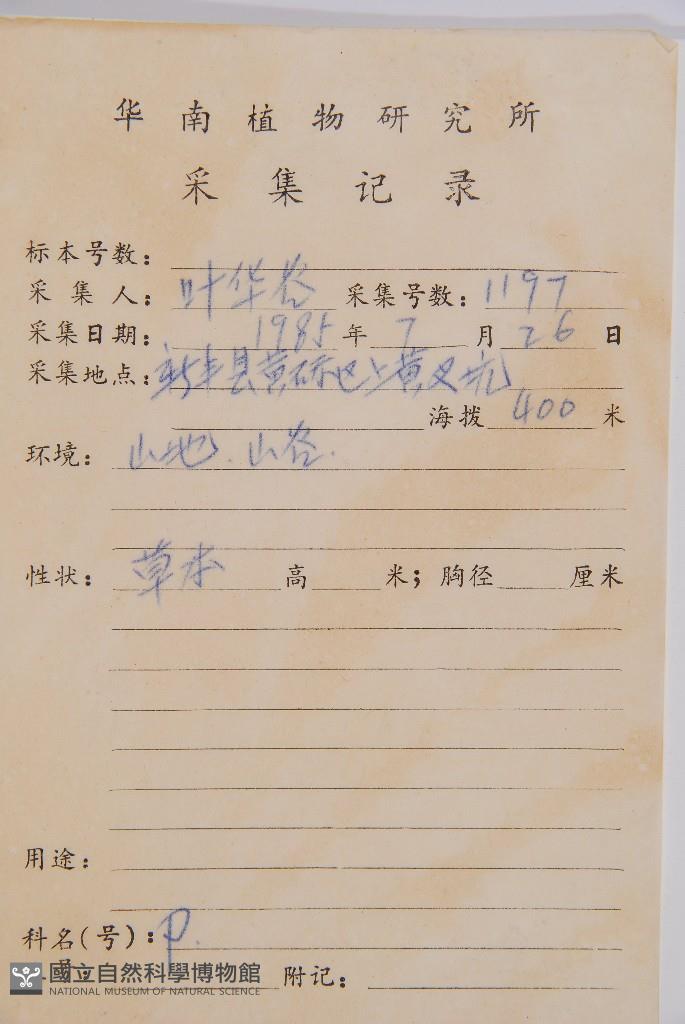 华南植物研究所
采集记录
标本号数：
采集人：叶华谷 采集号数：1197
采集日期：1985年7月26日
采集地点：新丰县黄磜
海拨400米
环境：山地.山谷.
性状：草本 高 米；胸径 厘米
用途：
科名(号)：P.
附记：
國立自然科學博物館
NATIONAL MUSEUM OF NATURAL SCIENCE